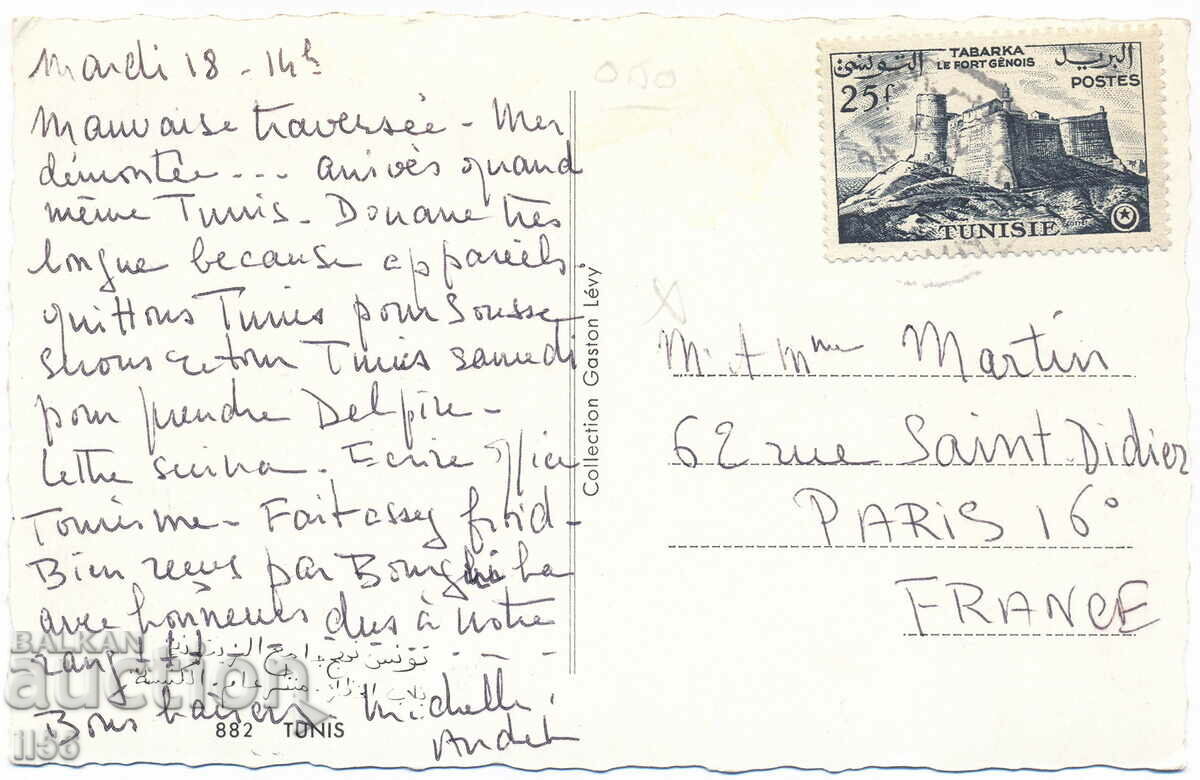 Mardi 18 - 14h
Mauvaise traversée - Mer
démontée ... arrivés quand
même Tunis - Douane très
longue because appareils.
quittons Tunis pour Sousse
serons retour Tunis samedi
pour prendre Delpire -
Lettre suivra. Ecrire Office
Tourisme - Fait assez froid -
Bien reçus par Bourghiba
avec honneurs dus à notre
rang
Bons baisers Michelle
882 TUNIS
Collection Gaston Lévy
التونسي البريد
TABARKA
LE FORT GÊNOIS
POSTES
25f
TUNISIE
Mr et Mme Martin
62 rue Saint Didier
PARIS 16°
FRANCE
BALKAN
auction
1158